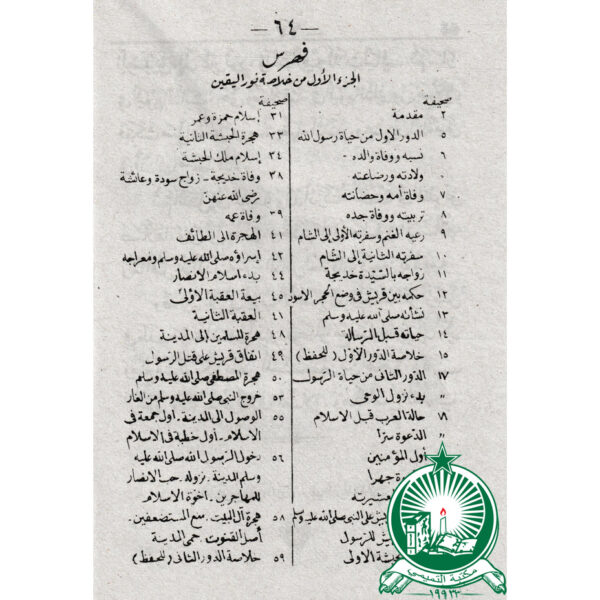 — ٦٤ —
فهرس
الجزء الأول من خلاصة نور اليقين
صحيفة
٢ مقدمة
٥ الدور الاول من حياة رسول الله
٦ نسبه ووفاة والده
٠ ولادته ورضاعته
٧ وفاة أمه وحضانته
٨ تربيته ووفاة جده
٩ رعيه الغنم وسفرته الأولى إلى الشام
١٠ سفرته الثانية إلى الشام
١١ زواجه بالسيدة خديجة
١٢ حكمه بين قريش فى وضع الحجر الاسود
١٣ نشأته صلى الله عليه وسلم
١٤ حياته قبل الرسالة
١٥ خلاصة الدور الأول (للحفظ)
١٧ الدور الثانى من حياة الرسول
〃 بدء نزول الوحى
١٨ حالة العرب قبل الاسلام
〃 الدعوة سرا
أول المؤمنين
جهرا
عشيرته
على النبى صلى الله عليه وسلم
للرسول
الحبشة الاولى
صحيفة
٣١ إسلام حمزة وعمر
٣٣ هجرة الحبشة الثانية
٣٤ إسلام ملك الحبشة
٣٨ وفاة خديجة - زواج سودة وعائشة
رضى الله عنهن
٣٩ وفاة عمه
٤١ الهجرة الى الطائف
٤٢ إسراؤه صلى الله عليه وسلم ومعراجه
٤٤ بدء اسلام الانصار
٤٥ بيعة العقبة الأولى
٤١ العقبة الثانية
٤٨ هجرة المسلمين إلى المدينة
٤٩ اتفاق قريش على قتل الرسول
٥٠ هجرة المصطفى صلى الله عليه وسلم
٥٣ خروج النبى صلى الله عليه وسلم من الغار
٥٥ الوصول الى المدينة. اول جمعة فى
الاسلام. أول خطبة فى الاسلام
٥٦ دخول الرسول الله صلى الله عليه
وسلم المدينة. نزوله. حب الانصار
للمهاجرين. اخوة الاسلام
٥٨ هجرة آل البيت. منع المستضعفين.
أصل القنوت. حمى المدينة
٥٩ خلاصة الدور الثانى (للحفظ)
مكتبة التميمي
١٩٩٣